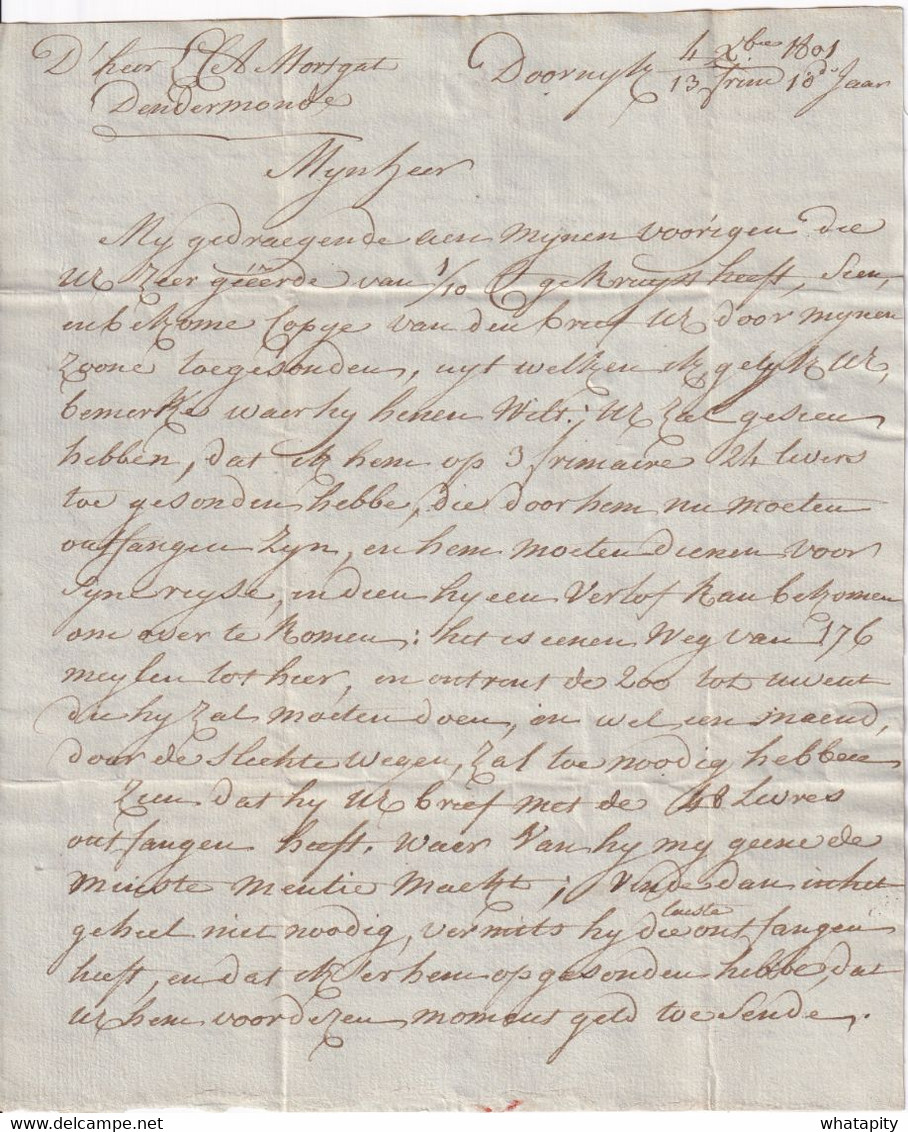 D'heer C A Mortgat
Dendermonde
Doornyk 4 Xbre 1801
13 frim 10de Jaar
Mynheer
My gedraegende aen mynen voorigen die
UE zeer geëerde van 1/10 gekruyst heeft, dien
inbekome Copye van den brief UE door mynen
zoone toegesonden, uyt welken ik gelyk UE
bemerke waer hy henen Wilt; UE zal gesien
hebben, dat ik hem op 3 frimaire 24 livers
toe gesonden hebbe, die door hem nu moeten
ontfangen zyn, en hem moeten dienen voor
syn reyse, indien hy een Verlof kan bekomen
om over te komen: het is eenen Weg van 176
meylen tot hier, en ontrent de 200 tot uwent
die hy zal moeten doen, en wel een maend,
door de slechte wegen, zal toe noodig hebben
zien dat hy UE brief met de 48 Livres
ontfangen heeft, waer Van hy my geene de
minste mentie maekt; Vinde dan in het
geheel niet noodig, vermits hy die leuste ontfangen
heeft, en dat ik er hem op gesonden hebbe, dat
UE hem voor dezen moment geld toe sende.
whatapity